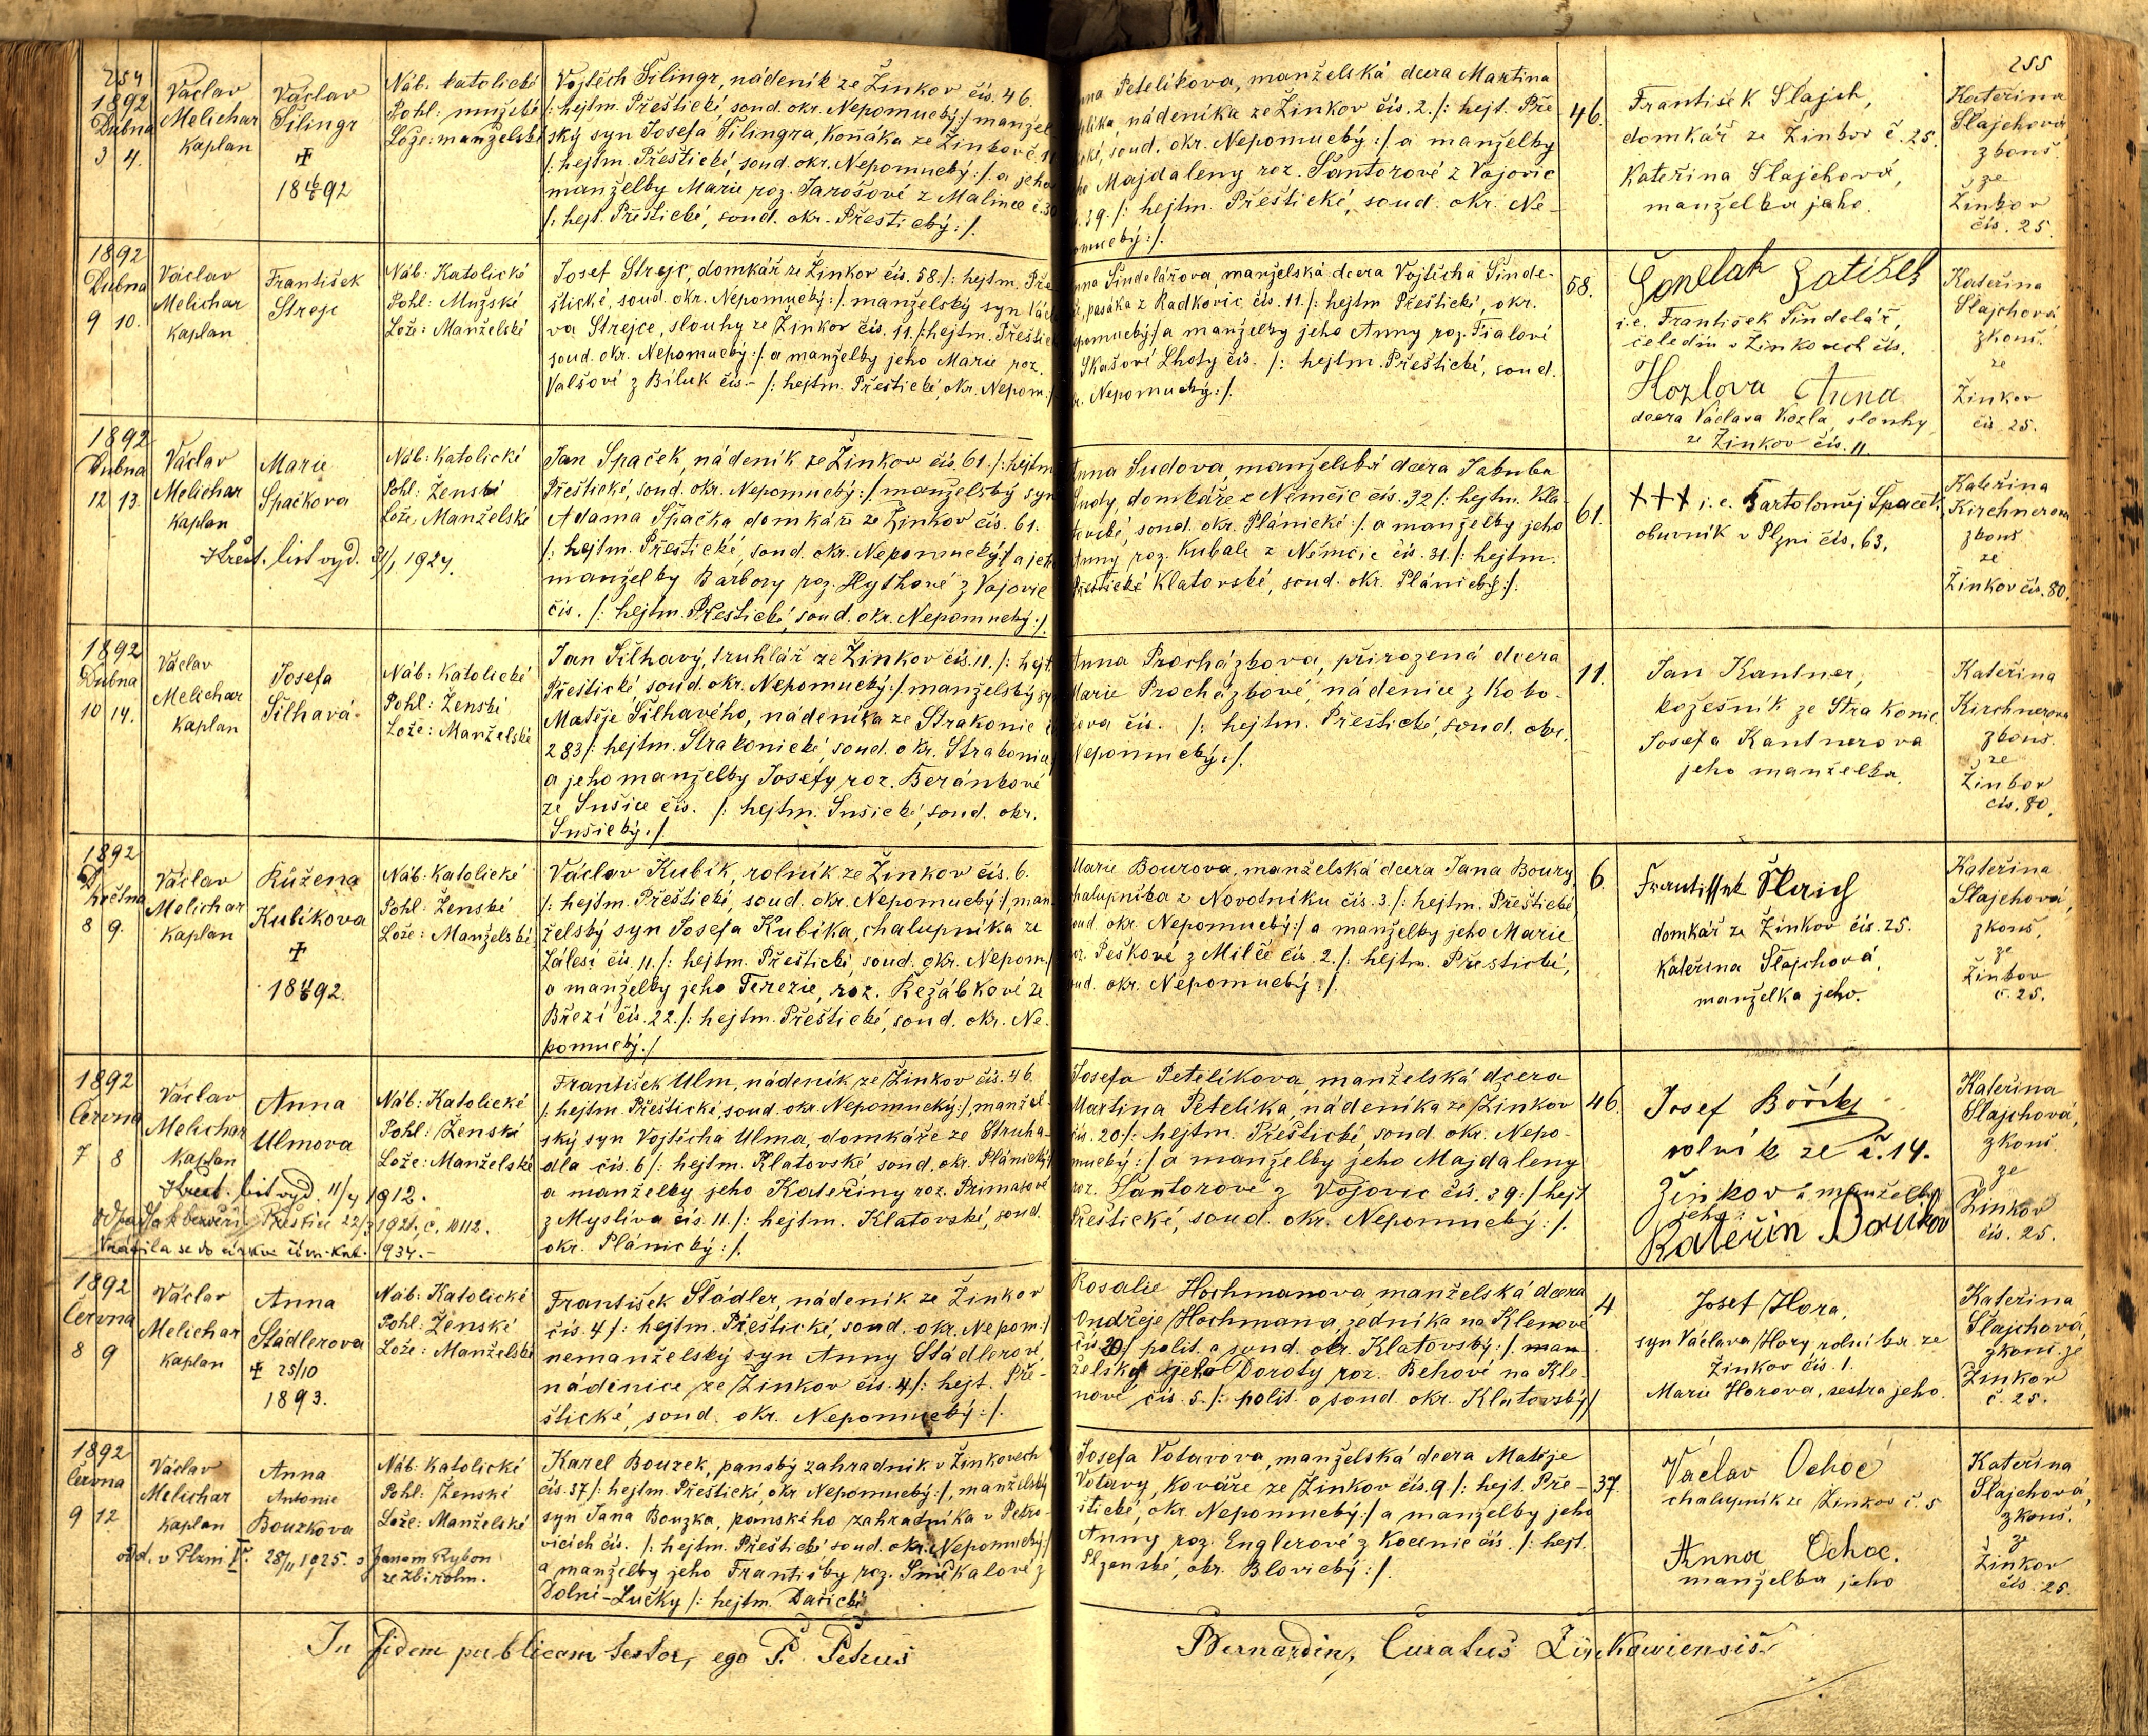 254
1892
Dubna
3 4.
Václav
Melichar
Kaplan
Václav
Šilingr
✠
18 92
Náb. katolické
Pohl: mužské
Lože: manželské
Vojtěch Šilingr, nádeník ze Žinkov čís. 46.
/: hejtm. Přeštické, soud. okr. Nepomucký :/ manžel
ský syn Josefa Šilingra, koňáka ze Žinkov č.
/: hejtm. Přeštické, soud. okr. Nepomucký :/ a jeho
manželky Marie roz. Jarošové z Malince č. 30
/: hejt. Přeštické, soud. okr. Přeštický :/.
Petelíkova, manželská dcera Martina
nádeníka ze Žinkov čís. 2. /: hejt. Pře
soud. okr. Nepomucký :/ a manželky
Majdaleny roz. Šantorové z Vojovic
39. /: hejtm. Přeštické, soud. okr. Ne-
pomucký :/.
46.
František Slajch,
domkář ze Žinkov č. 25.
Kateřina Slajchová,
manželka jeho.
255
Kateřina
Slajchová
zkouš.
ze
Žinkov
čís. 25.
1892
Dubna
9 10.
Václav
Melichar
Kaplan
František
Strejc
Náb: Katolické
Pohl: Mužské
Lože: Manželské
Josef Strejc, domkář ze Žinkov čís. 58. /: hejtm. Pře
štické, soud. okr. Nepomucký :/. manželský syn Václ
va Strejce, slouhy ze Žinkov čís. 11. /: hejtm. Přeštick
soud. okr. Nepomucký :/. a manželky jeho Marie roz.
Valšové z Bíluk čís. - /: hejtm. Přeštické, okr. Nepom. :/
Anna Šindelářova, manželská dcera Vojtěcha Šinde-
pasáka z Radkovic čís. 11. /: hejtm Přeštické, okr.
Nepomucký :/ a manželky jeho Anny roz. Fialové
Skašové Lhoty čís. /: hejtm. Přeštické, soud.
Nepomucký :/.
58.
i. e. František Šindelář,
čeledín v Žinkovech čís.
Kozlova Anna
dcera Václava Kozla, slouhy
ze Žinkov čís. 11.
Kateřina
Slajchová
zkouš.
ze
Žinkov
čís. 25.
1892
Dubna
12 13.
Václav
Melichar
Kaplan
Marie
Spačkova
Náb: Katolické
Pohl: Ženské
Lože: Manželské
Křest. list vyd. 1927.
Jan Spaček, nádeník ze Žinkov čís. 61. /: hejtm
Přeštické, soud. okr. Nepomucký :/ manželský syn
Adama Špačka, domkáře ze Žinkov čís. 61.
/: hejtm. Přeštické, soud. okr. Nepomucký :/ a jeh
manželky Barbory roz. Hythové z Vojovic
čís. /: hejtm. Přeštické, soud. okr. Nepomucký :/.
Anna Sudova, manželská dcera Jakuba
Sudy, domkáře z Němčic čís. 32 /: hejtm. Kla-
tovské, soud. okr. Plánické :/ a manželky jeho
Anny roz. Kubale z Němčic čís. 31. /: hejtm.
Přeštické Klatovské, soud. okr. Plánický :/.
61.
+++ i. e. Bartoloměj Špaček,
obuvník v Plzni čís. 63.
Kateřina
Kirchnerova
zkouš
ze
Žinkov čís. 80.
1892
Dubna
10 14.
Václav
Melichar
Kaplan
Josefa
Šilhavá
Náb: Katolické
Pohl: Ženské
Lože: Manželské
Jan Šilhavý, truhlář ze Žinkov čís. 11. /: hejt
Přeštické soud. okr. Nepomucký :/ manželský sy
Matěje Šilhavého, nádeníka ze Strakonic č
283 /: hejtm. Strakonické, soud. okr. Strakonic
a jeho manželky Josefy roz. Beránkové
ze Sušice čís. /: hejtm. Sušické, soud. okr.
Sušický :/.
Anna Procházkova, přirozená dcera
Marie Procházkové, nádenice z Kobo-
čís. /: hejtm. Přeštické, soud. okr.
Nepomucký :/.
11.
Jan Kantner,
kožešník ze Strakonic,
Josefa Kantnerova
jeho manželka.
Kateřina
Kirchnerova
zkouš.
ze
Žinkov
čís. 80.
1892
Května
8 9.
Václav
Melichar
Kaplan
Růžena
Kubíkova
✠
18 92.
Náb: Katolické
Pohl: Ženské
Lože: Manželské
Václav Kubík, rolník ze Žinkov čís. 6.
/: hejtm. Přeštické, soud. okr. Nepomucký :/, man-
želský syn Josefa Kubíka, chalupníka ze
Zálesí čís. 11. /: hejtm. Přeštické, soud. okr. Nepom. :/
a manželky jeho Terezie, roz. Řežábkové ze
Březí čís. 22. /: hejtm. Přeštické, soud. okr. Ne-
pomucký. :/
Marie Bourova, manželská dcera Jana Boury,
chalupníka z Novotníku čís. 3. /: hejtm. Přeštické
soud. okr. Nepomucký :/ a manželky jeho Marie
roz. Peškové z Milče čís. 2. /: hejtm. Přeštické,
soud. okr. Nepomucký :/.
6.
domkář ze Žinkov čís. 25.
Kateřina Slajchová,
manželka jeho.
Kateřina
Slajchová,
zkouš.
ze
Žinkov
č. 25.
1892
Června
7 8
Václav
Melichar
Kaplan
Anna
Ulmova
Náb: Katolické
Pohl: Ženské
Lože: Manželské
Křest. list vyd. 11/4 1912.
Odpadla k bezvěří Přeštice 22/3 1921, č. 10112.
Vrátila se do církve řím. kat. 1934.-
František Ulm, nádeník ze Žinkov čís. 46
/: hejtm. Přeštické, soud. okr. Nepomucký :/, manžel-
ský syn Vojtěcha Ulma, domkáře ze Struha-
dla čís. 6 /: hejtm. Klatovské soud. okr. Plánický :/
a manželky jeho Kateřiny roz. Primasové
z Myslíva čís. 11. /: hejtm. Klatovské, soud.
okr. Plánický :/.
Josefa Petelíkova, manželská dcera
Martina Petelíka, nádeníka ze Žinkov
čís. 20 /: hejtm. Přeštické, soud. okr. Nepo-
mucký :/ a manželky jeho Majdaleny
roz. Šantorové z Vojovic čís. 39 :/ hejt
Přeštické, soud. okr. Nepomucký :/.
46.
Josef
rolník ze č. 14.
Žinkov a manželka
jeho:
Kateřin
Kateřina
Slajchová,
zkouš
ze
Žinkov
čís. 25.
1892
Června
8 9
Václav
Melichar
Kaplan
Anna
Städlerova
✠ 25/10
1893.
Náb: Katolické
Pohl: Ženské
Lože: Manželské
František Städler, nádeník ze Žinkov
čís. 4 /: hejtm. Přeštické, soud. okr. Nepom :/
nemanželský syn Anny Städlerové,
nádenice ze Žinkov čís. 4. /: hejt. Pře-
štické, soud. okr. Nepomucký :/.
Rosalie Hochmanova, manželská dcera
Ondřeje Hochmana, zedníka na Klenové
čís 20 / polit. a soud. okr. Klatovský :/. man-
želsky jeho Doroty roz. Behové na Kle-
nové čís. 5. /: polit. a soud okr. Klatovský :/
4
Josef Hora,
syn Václava Hory rolníka ze
Žinkov čís. 1.
Marie Horova, sestra jeho.
Kateřina
Slajchová,
zkouš. ze
Žinkov
č. 25.
1892
Června
9 12.
Václav
Melichar
Kaplan
Anna
Antonie
Bouzkova
Náb: Katolické
Pohl: Ženské
Lože: Manželské
odd. v Plzni 28/11 1925. s Janem Rybon
ze Zbiroh
Karel Bouzek, panský zahradník v Žinkovech
čís. 37 /: hejtm. Přeštické, okr Nepomucký :/, manželský
syn Jana Bouzka, panského zahradníka v Petro-
vicích čís. /: hejtm. Přeštické soud. okr. Nepomucký :/
a manželky jeho Františky roz. Smékalové z
Dolní-Lučky /: hejtm. Dačické
Josefa Votavova, manželská dcera Matěje
Votavy, Kováře ze Žinkov čís. 9 /: hejt. Pře-
štické, okr. Nepomucký :/ a manželky jeho
Anny, roz. Englerové z Kocenic čís. /: hejt.
Plzenské, okr. Blovický :/.
37.
Václav Ochoc
chalupník ze Žinkov č. 5
Anna Ochoc.
manželka jeho
Kateřina
Slajchová,
zkouš.
ze
Žinkov
čís. 25.
In fidem publicam testor, ego P. Petrus
Bernardin, Curatus Žinkowiensis.